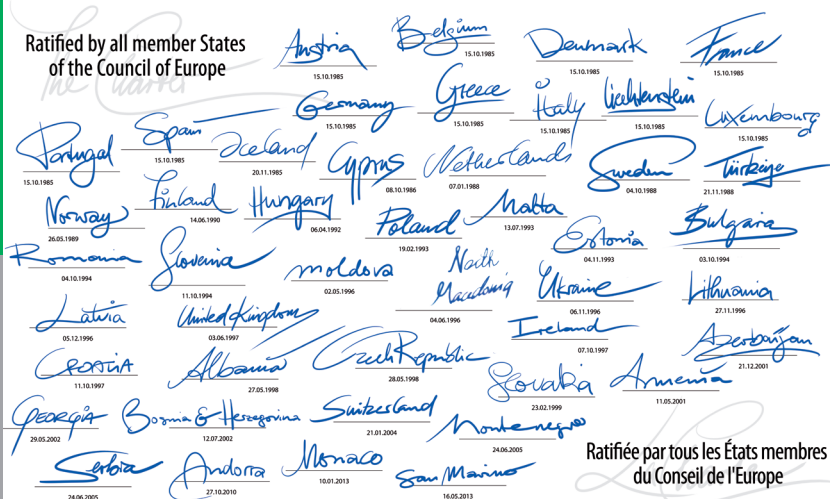 The Charter
Ratified by all member States
of the Council of Europe
Austria
15.10.1985
Belgium
15.10.1985
Denmark
15.10.1985
France
15.10.1985
Germany
15.10.1985
Greece
15.10.1985
Italy
15.10.1985
Liechtenstein
15.10.1985
Luxembourg
15.10.1985
Portugal
15.10.1985
Spain
15.10.1985
Iceland
20.11.1985
Cyprus
08.10.1986
Netherlands
07.01.1988
Sweden
04.10.1988
Türkiye
21.11.1988
Norway
26.05.1989
Finland
14.06.1990
Hungary
06.04.1992
Poland
19.02.1993
Malta
13.07.1993
Estonia
04.11.1993
Bulgaria
03.10.1994
Romania
04.10.1994
Slovenia
11.10.1994
moldova
02.05.1996
North
Macedonia
04.06.1996
Ukraine
06.11.1996
Lithuania
27.11.1996
Latvia
05.12.1996
United Kingdom
03.06.1997
Ireland
07.10.1997
Azerbaijan
21.12.2001
CROATIA
11.10.1997
Albania
27.05.1998
Czech Republic
28.05.1998
Slovakia
23.02.1999
Armenia
11.05.2001
GEORGIA
29.05.2002
Bosnia & Herzegovina
12.07.2002
Switzerland
21.01.2004
Montenegro
24.06.2005
Ratifiée par tous les États membres
du Conseil de l'Europe
Serbia
24.06.2005
Andorra
27.10.2010
Monaco
10.01.2013
San Marino
16.05.2013